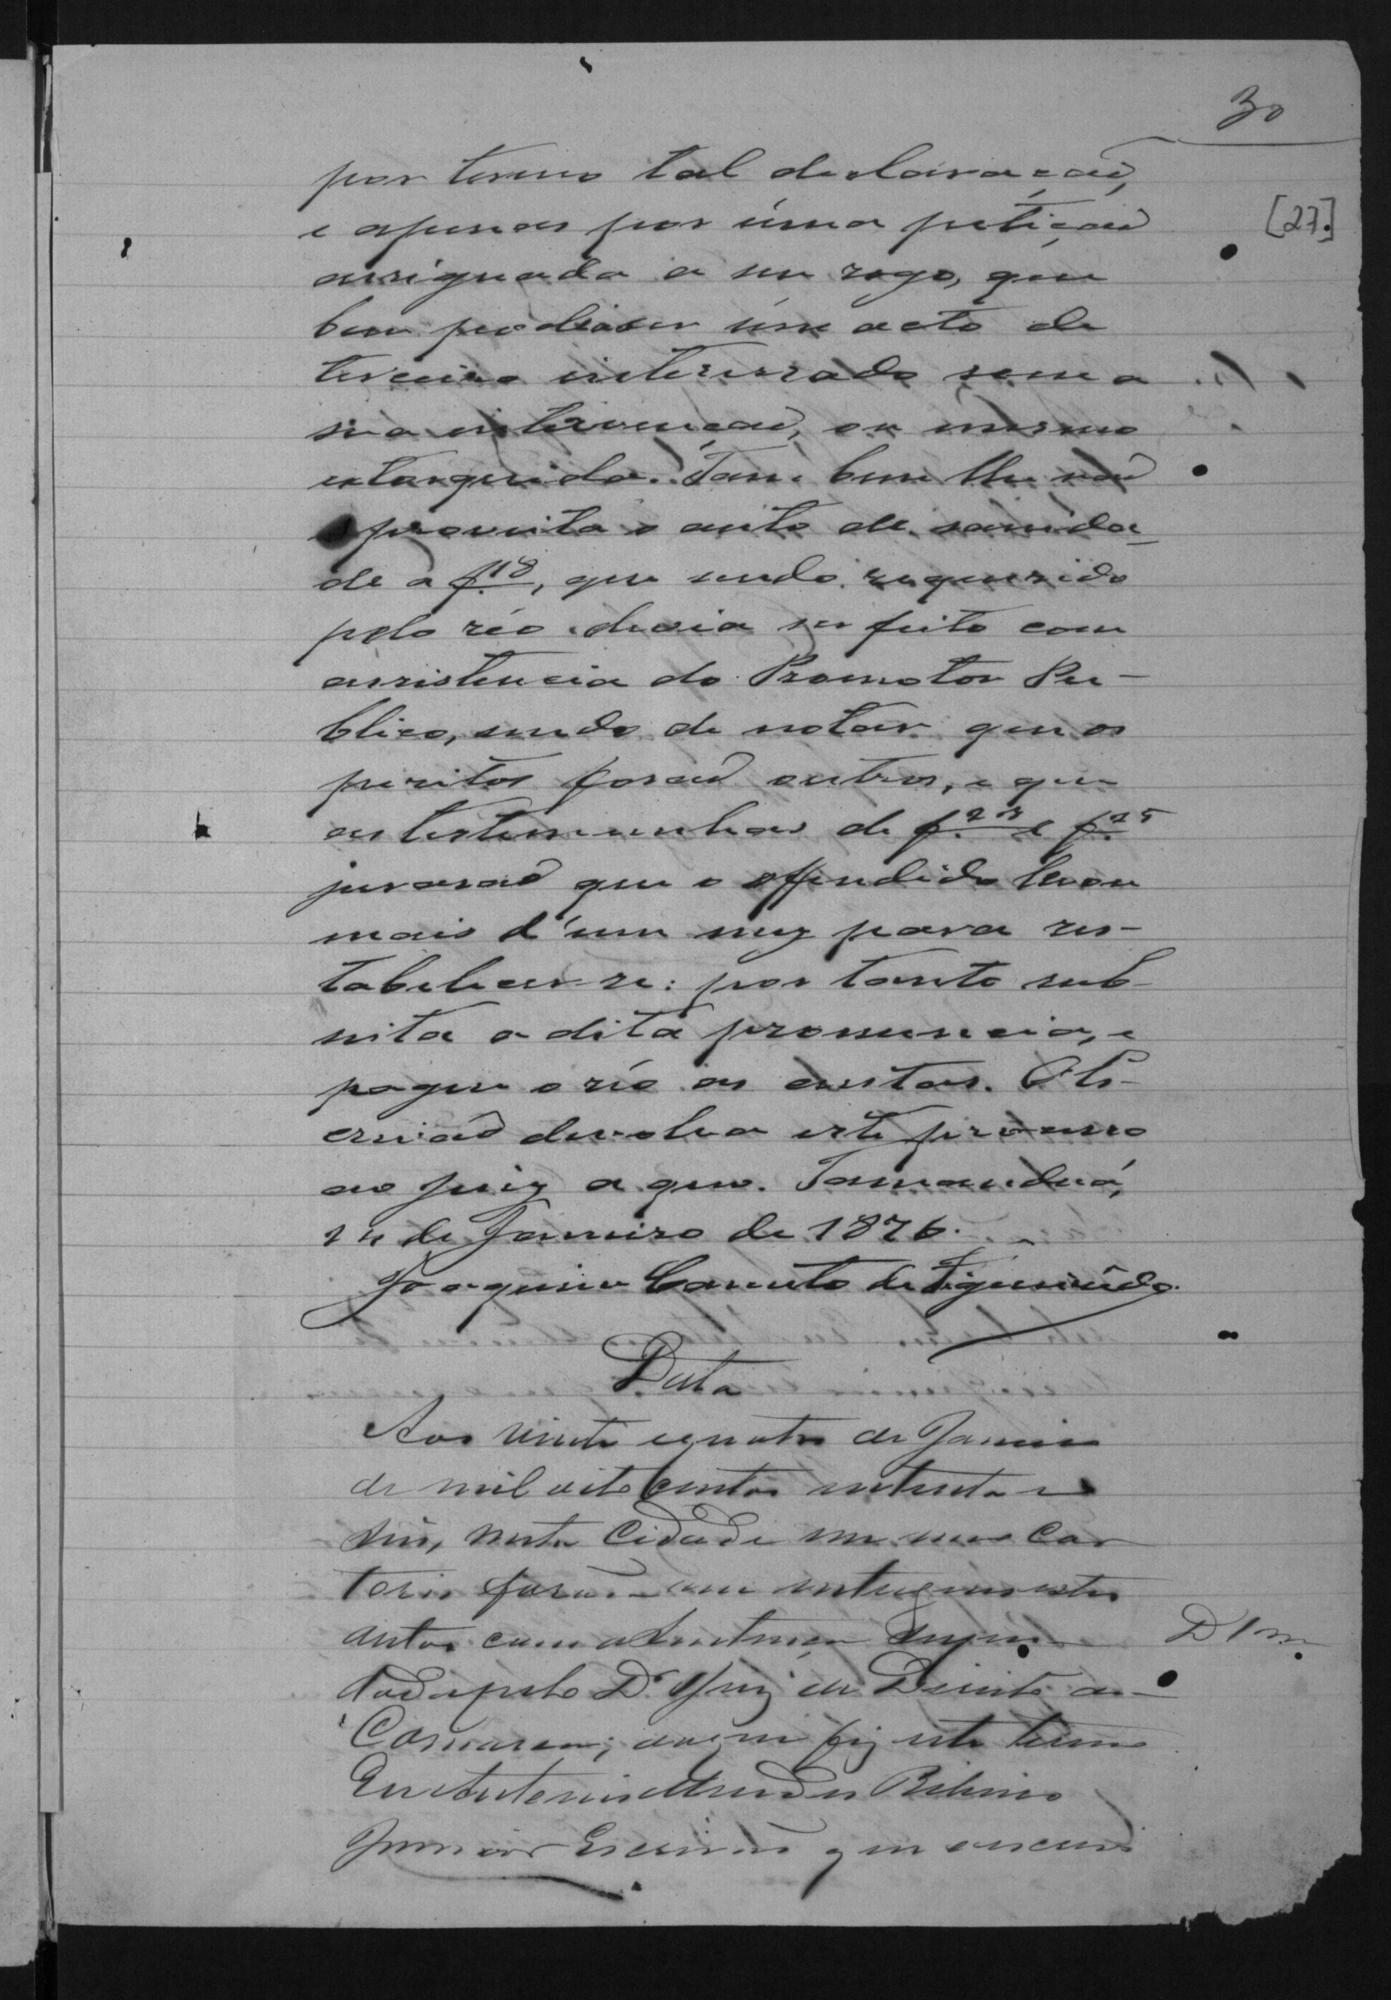 30
[27.]
por termo tal declaração,
e apenas por úma petição
assignada a seu rogo, que
bem podia ser úm acto de
terceiro interessado sem a
sua intervenção, ou mesmo
extorquida. Tambem lhe não
aproveita o auto de sanida-
de a f. 18, que sendo requerido
pelo réo devia ser feito com
assistencia do Promotor Pu-
blico, sendo de notar que os
peritos forão outros, e que
as testemunhas de f. 23 e f. 25
jurarão que o offendido levou
mais d'um mez para res-
tabelecer-se: por tanto sub-
sista a dita pronuncia, e
pague o réo as custas. O Es-
crivão devolva este processo
ao juiz a quo. Tamanduá,
24 de Janeiro de 1876.
Joaquim Canuto de Figueirêdo.
Data
Aos vinte e quatro de Janeiro
de mil oito centos setenta e
seis, nesta Cidade em meu Car
torio forão me entregues estes
autos com a Sentença supra
dada pelo Dr. Juiz de Direito da
Comarca; do que fiz este termo
Eu Antonio Mendes Ribeiro
Junior Escrivão que escrevi